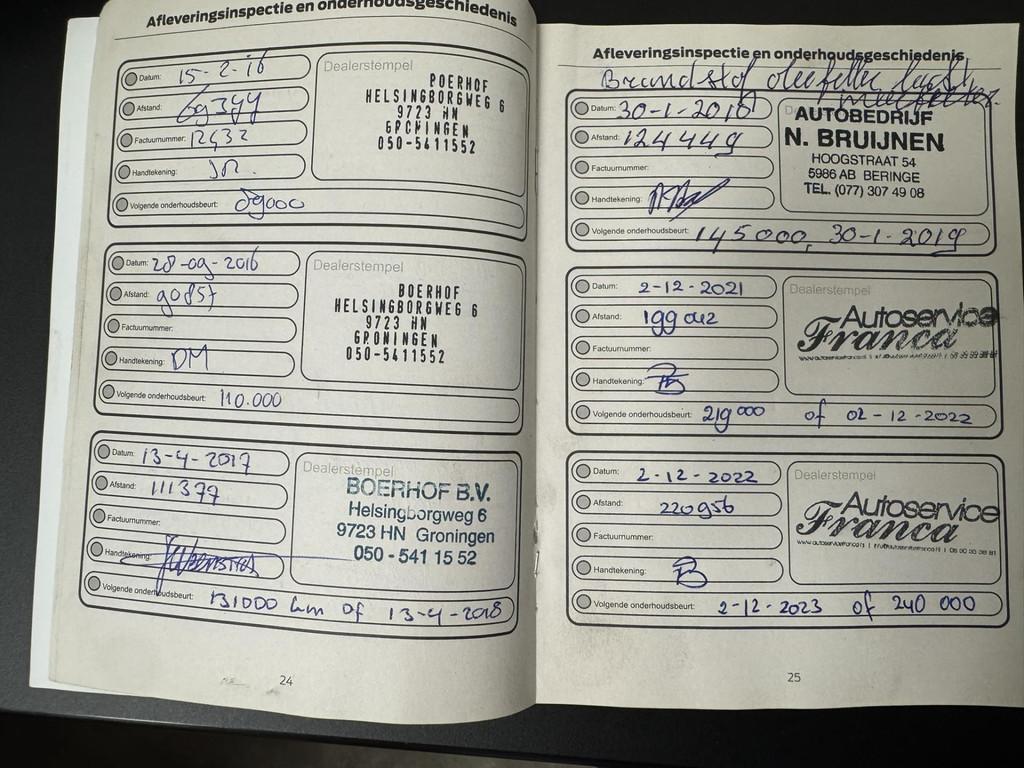 Afleveringsinspectie en onderhoudsgeschiedenis
Datum: 15-2-16
Afstand: 69399
Factuurnummer: 12432
Handtekening: JR.
Volgende onderhoudsbeurt: 89000
Dealerstempel
BOERHOF
HELSINGBORGWEG 6
9723 HN
GRONINGEN
050-5411552
Datum: 28-09-2016
Afstand: 90857
Factuurnummer:
Handtekening: DM
Volgende onderhoudsbeurt: 110.000
Dealerstempel
BOERHOF
HELSINGBORGWEG 6
9723 HN
GRONINGEN
050-5411552
Datum: 13-4-2017
Afstand: 111377
Factuurnummer:
Handtekening:
Volgende onderhoudsbeurt: 131000 km of 13-4-2018
Dealerstempel
BOERHOF B.V.
Helsingborgweg 6
9723 HN Groningen
050 - 541 15 52
24
Afleveringsinspectie en onderhoudsgeschiedenis
Brandstof oliefilter lucht
Datum: 30-1-2018
Afstand: 124449
Factuurnummer:
Handtekening:
Volgende onderhoudsbeurt: 145000, 30-1-2019
AUTOBEDRIJF
N. BRUIJNEN
HOOGSTRAAT 54
5986 AB BERINGE
TEL. (077) 307 49 08
Datum: 2-12-2021
Afstand: 199012
Factuurnummer:
Handtekening:
Volgende onderhoudsbeurt: 219000 of 02-12-2022
Dealerstempel
Autoservice
Franca
Datum: 2-12-2022
Afstand: 220956
Factuurnummer:
Handtekening:
Volgende onderhoudsbeurt: 2-12-2023 of 240 000
Dealerstempel
Autoservice
Franca
25